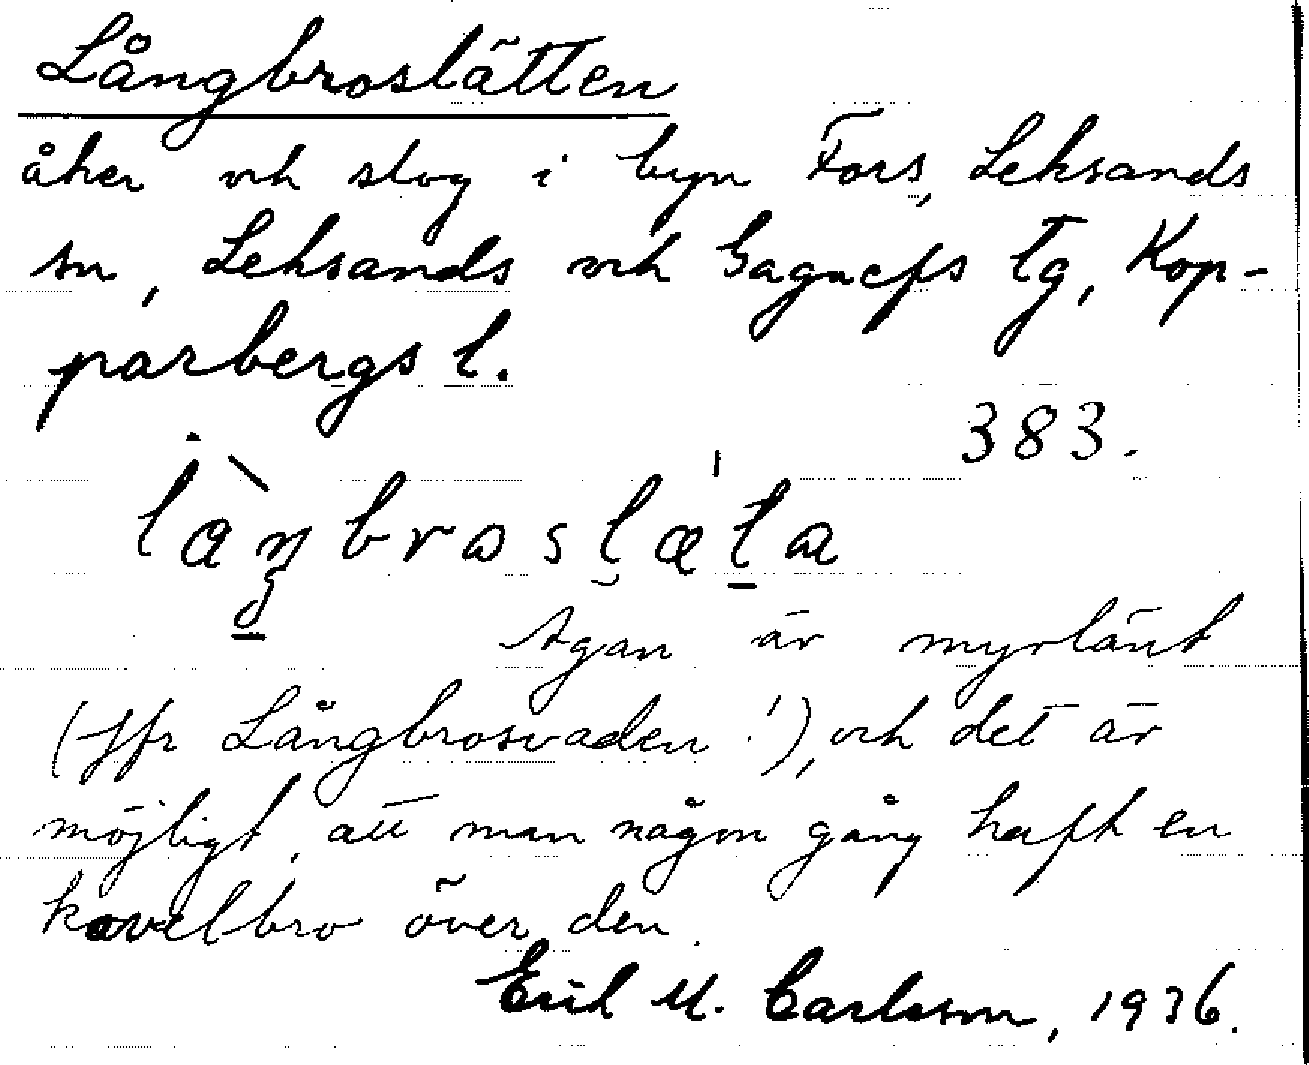 Långbroslätten
åker och slog i byn Fors, Leksands
sn, Leksands och Gagnefs tg, Kop-
parbergs l.
383.
Ägan är myrlänt
(Jfr Långbrosvaden!), och det är
möjligt, att man någon gång haft en
kavelbro över den.
Erik M. Carlsson, 1936.